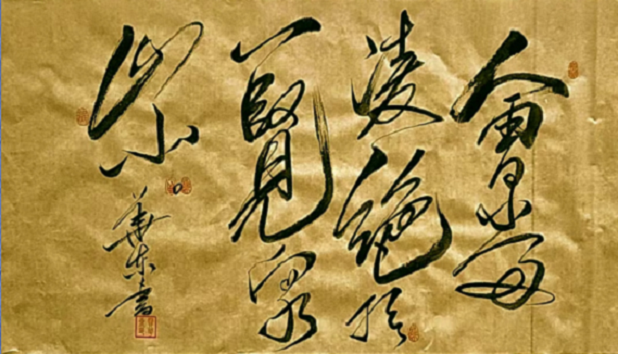 會當
凌絕頂
一覽眾
山小
華東書